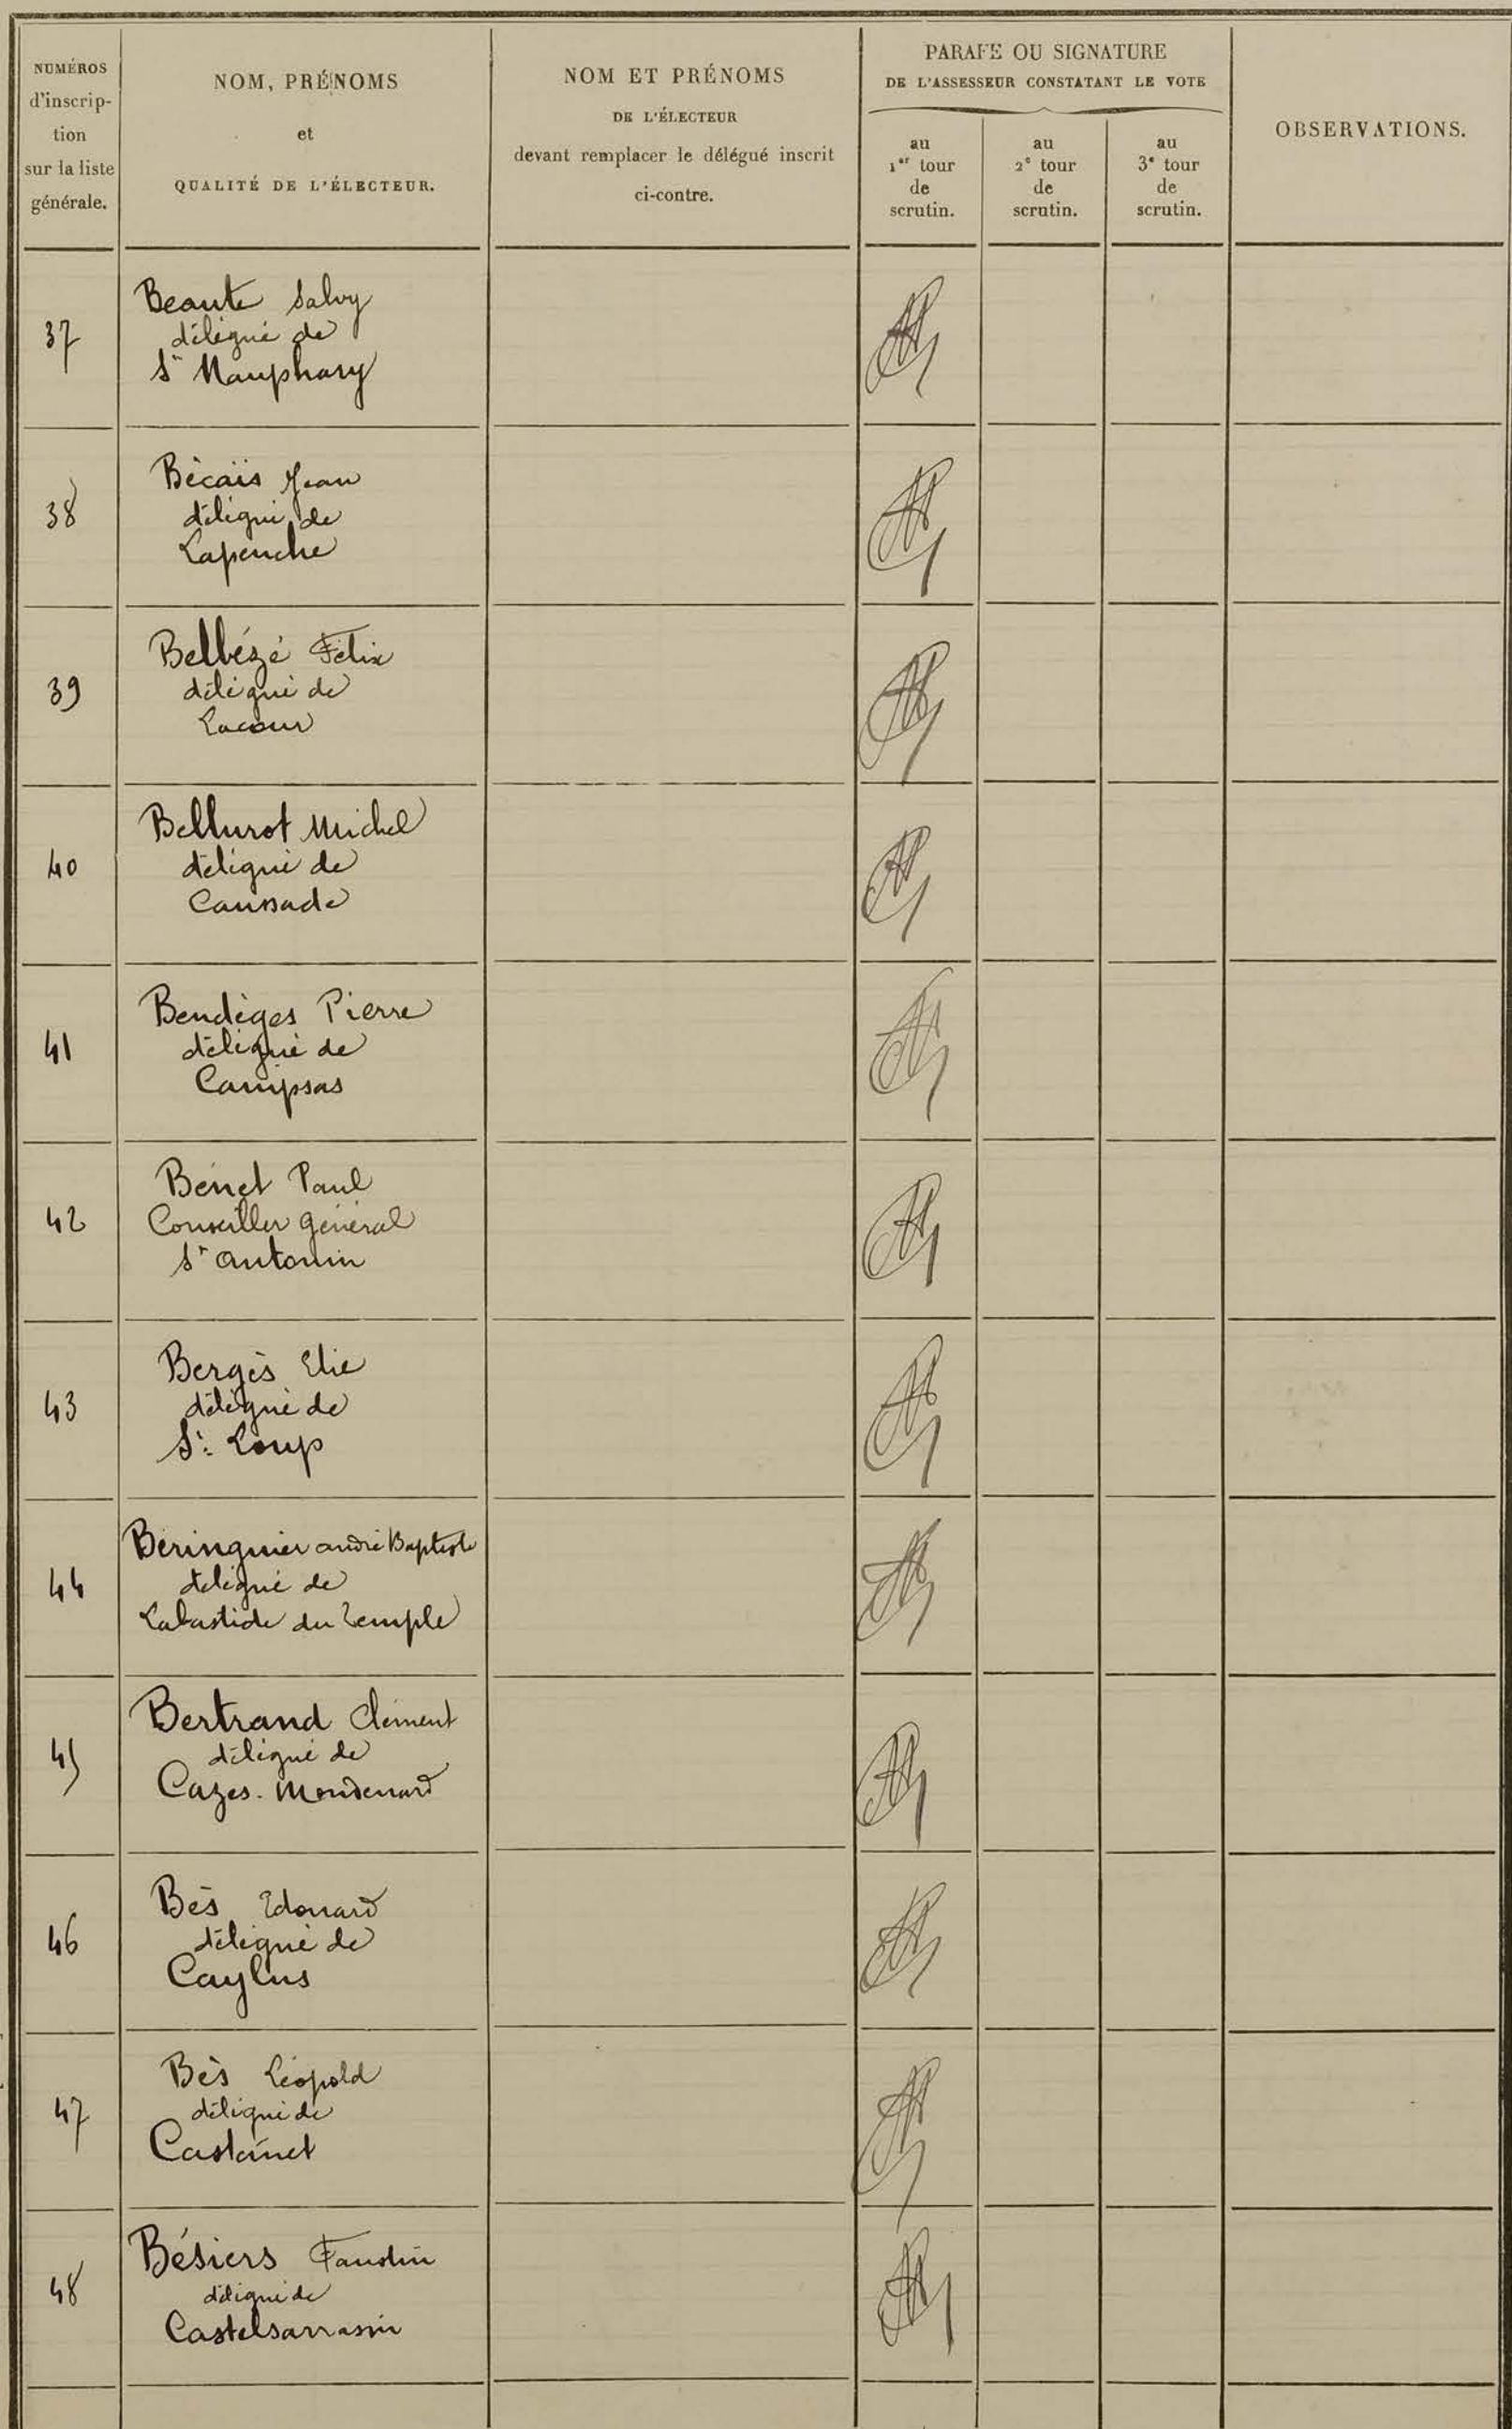 NUMÉROS
d'inscrip-
tion
sur la liste
générale.
NOM, PRÉNOMS
et
QUALITÉ DE L'ÉLECTEUR.
NOM ET PRÉNOMS
DE L'ÉLECTEUR
devant remplacer le délégué inscrit
ci-contre.
PARAFE OU SIGNATURE
DE L'ASSESSEUR CONSTATANT LE VOTE
au
1er tour
de
scrutin.
au
2e tour
de
scrutin.
au
3e tour
de
scrutin.
OBSERVATIONS.
37
Beaute Salvy
délégué de
St Nauphary
38
Bécaïs Jean
délégué de
Lapenche
39
Belbézé Félix
délégué de
Lacour
40
Bellurot Michel
délégué de
Caussade
41
Bendèges Pierre
délégué de
Campsas
42
Benet Paul
Conseiller général
St Antonin
43
Bergès Elie
délégué de
St. Loup
44
Beringuier André Baptiste
délégué de
Labastide du Temple
45
Bertrand Clément
délégué de
Cazes-Mondenard
46
Bès Edouard
délégué de
Caylus
47
Bès Léopold
délégué de
Castanet
48
Bésiers Faustin
délégué de
Castelsarrasin